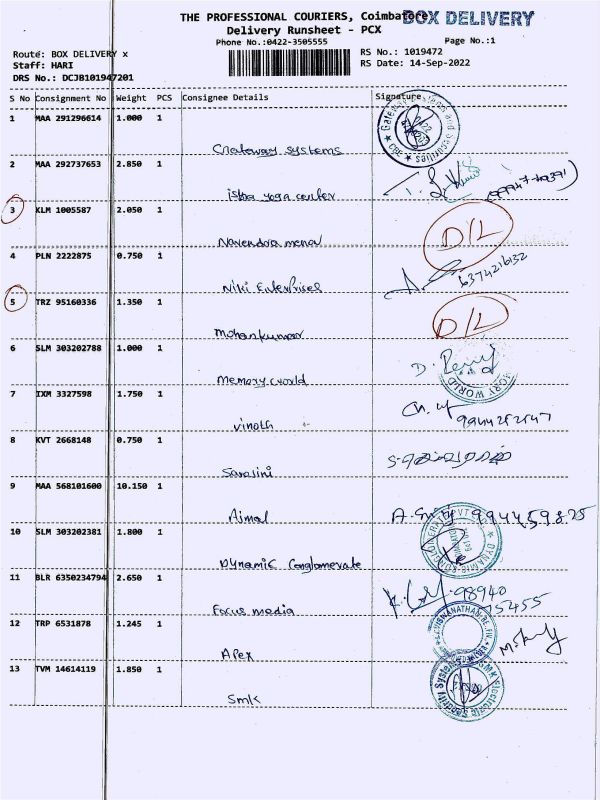 THE PROFESSIONAL COURIERS, Coimbatore
BOX DELIVERY
Delivery Runsheet - PCX
Phone No.:0422-3505555
Page No.:1
Route: BOX DELIVERY x
RS No.: 1019472
Staff: HARI
RS Date: 14-Sep-2022
DRS No.: DCJB101947201
S No Consignment No Weight PCS Consignee Details Signature
1 MAA 291296614 1.000 1
Gateway systems
2 MAA 292737653 2.850 1
isha yoga center
3 KLM 1005587 2.050 1
Narendora menon D/L
4 PLN 2222875 0.750 1
Niki Enterprises 6374216132
5 TRZ 95160336 1.350 1
Mohankumar D/L
6 SLM 303202788 1.000 1
Memory world
7 IXM 3327598 1.750 1
vinoth
8 KVT 2668148 0.750 1
Sarojini
9 MAA 568101600 10.150 1
Ajmal
10 SLM 303202381 1.800 1
Dynamic Conglomerate
11 BLR 6350234794 2.650 1
Focus media 98940 75455
12 TRP 6531878 1.245 1
Apex
13 TVM 14614119 1.850 1
SMK